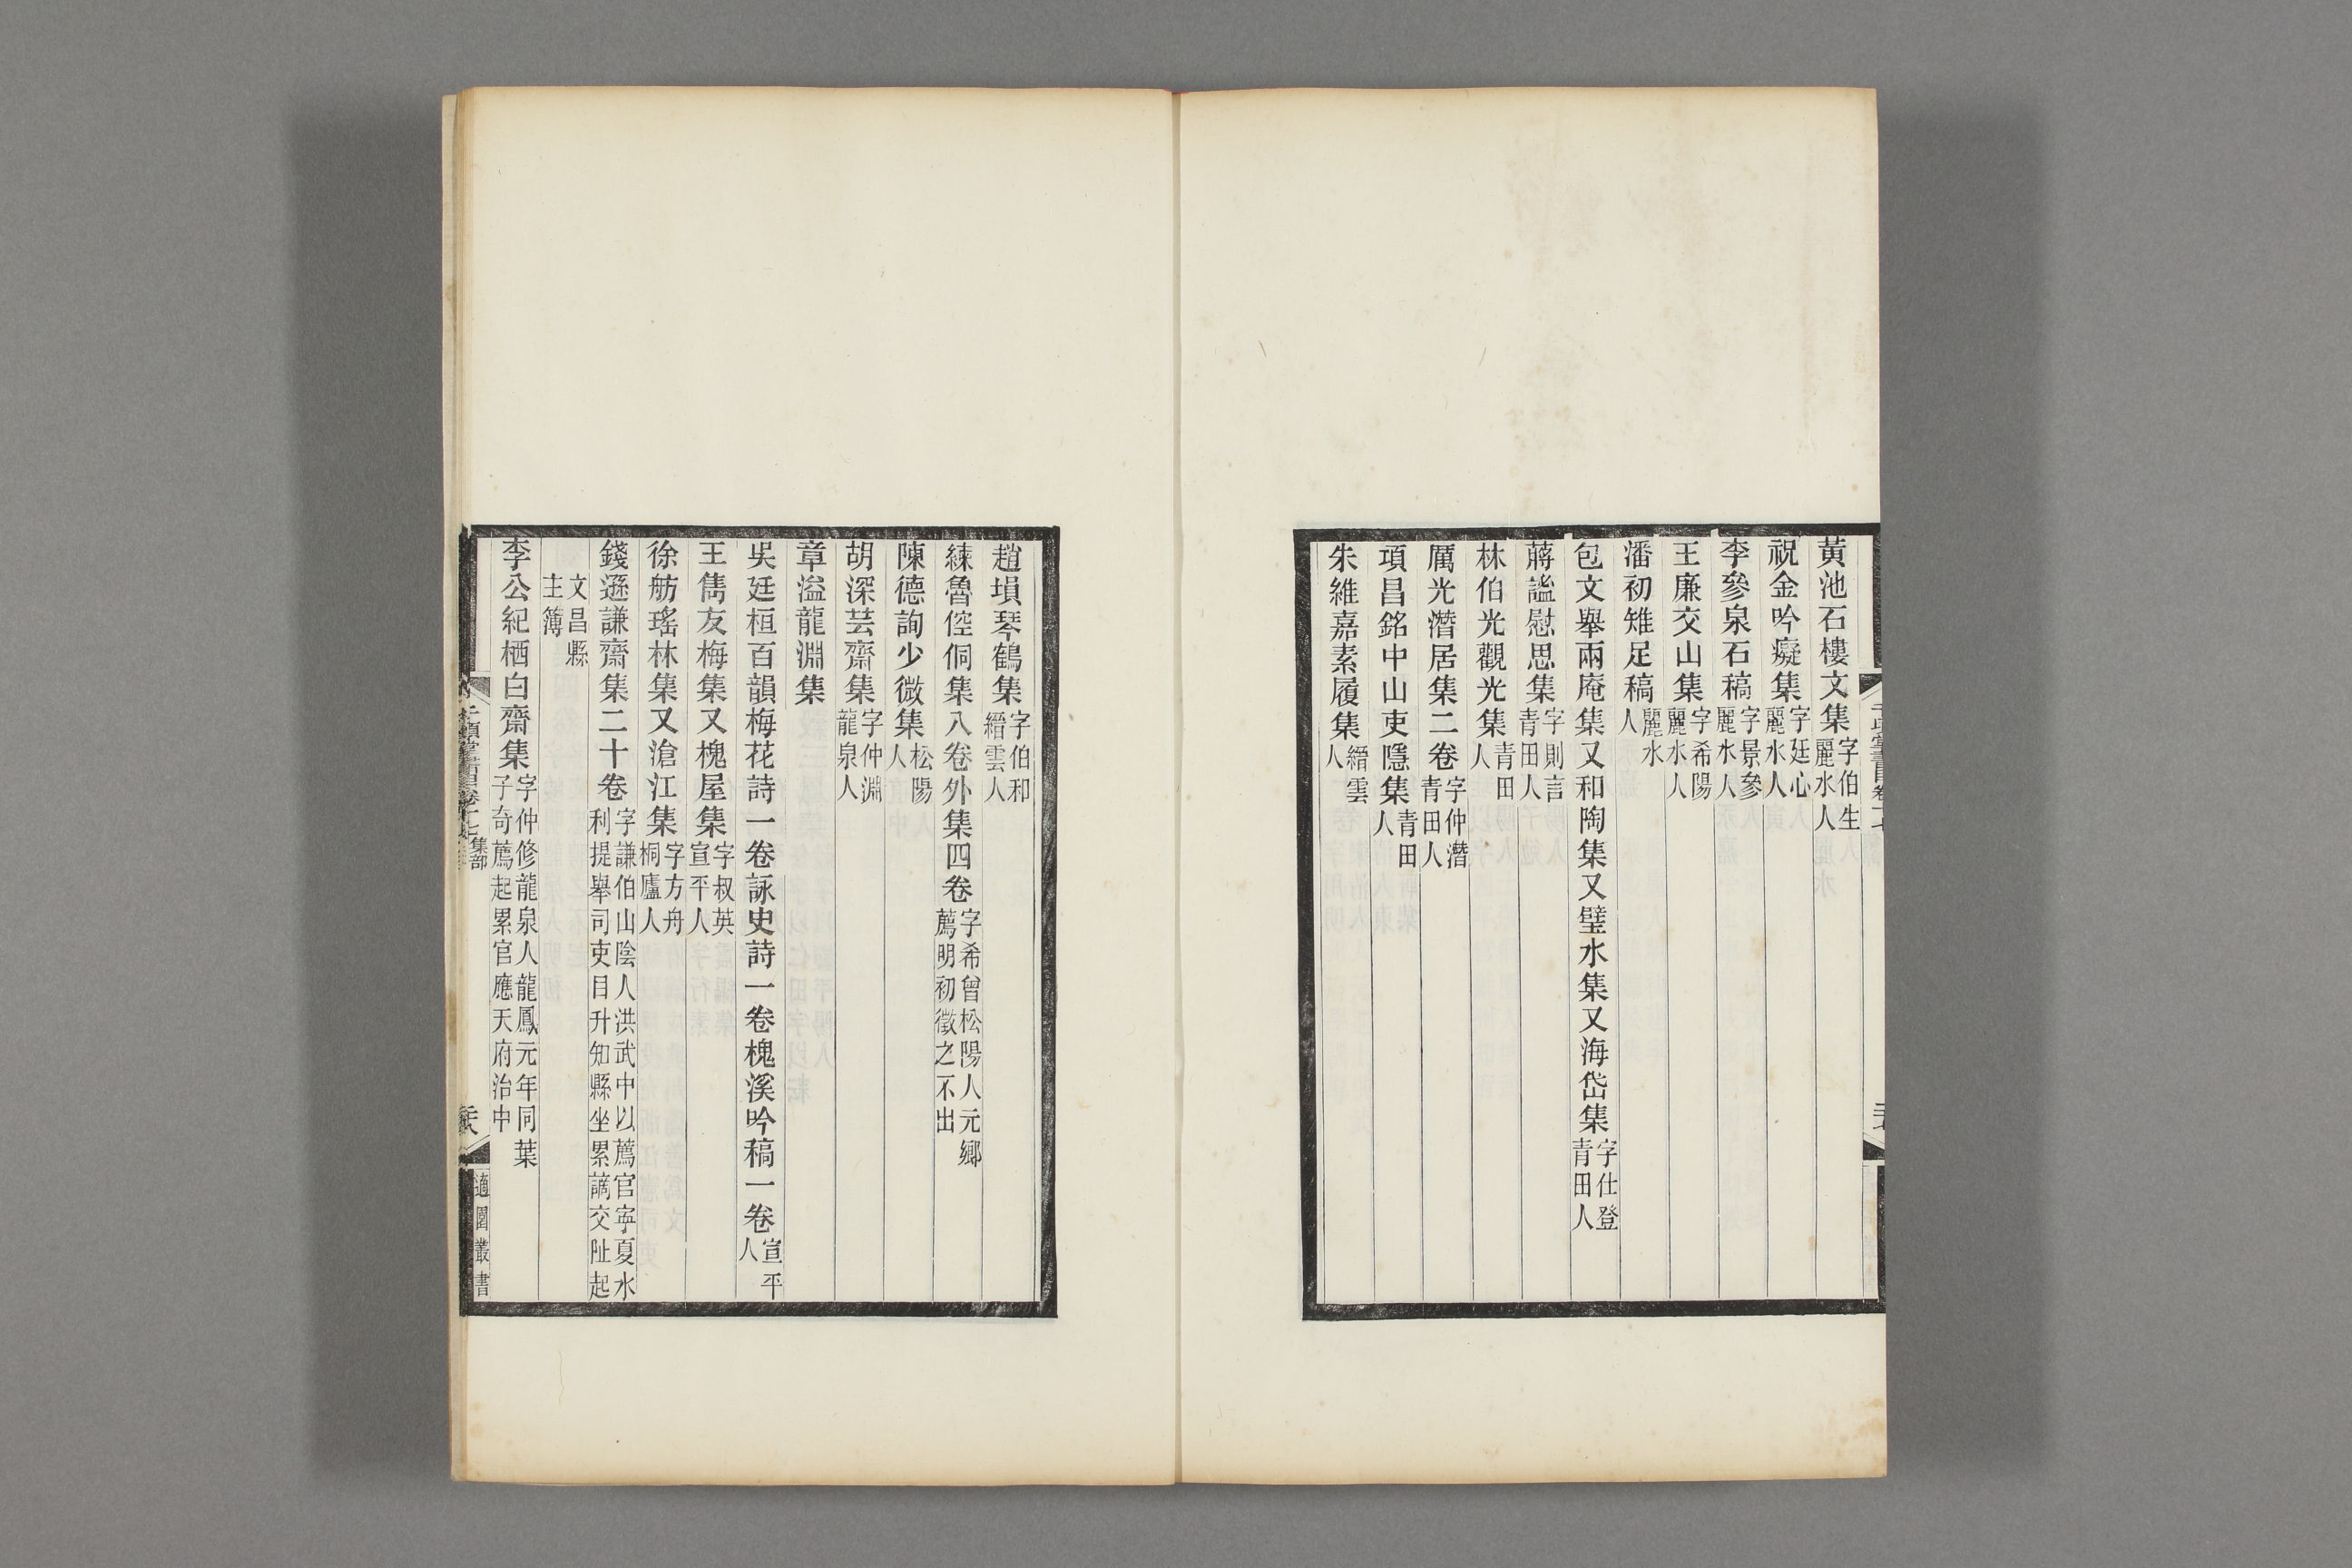 黃池石樓文集字伯生麗水人
祝金吟癡集字廷心麗水人
李參泉石稿字景參麗水人
王廉交山集字希陽麗水人
潘初雉足稿麗水人
包文舉兩庵集又和陶集又璧水集又海岱集字仕登青田人
蔣謐慰思集字則言青田人
林伯光觀光集青田人
厲光潛居集二卷字仲潛青田人
項昌銘中山吏隱集青田人
朱維嘉素履集縉雲人
趙塤琴鶴集字伯和縉雲人
練魯倥侗集八卷外集四卷字希曾松陽人元鄉薦明初徵之不出
陳德詢少微集松陽人
胡深芸齋集字仲淵龍泉人
章溢龍淵集
吳廷桓百韻梅花詩一卷詠史詩一卷槐溪吟稿一卷宣平人
王雋友梅集又槐屋集字叔英宣平人
徐舫瑤林集又滄江集字方舟桐廬人
錢遜謙齋集二十卷字謙伯山陰人洪武中以薦官寧夏水利提舉司吏目升知縣坐累謫交阯起
文昌縣主簿
李公紀栖白齋集字仲修龍泉人龍鳳元年同葉子奇薦起累官應天府治中
千頃堂書目卷十七 集部
适園叢書